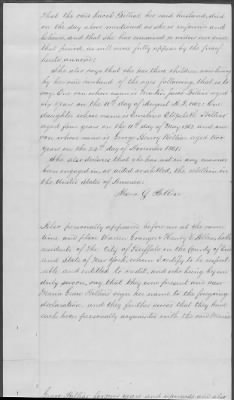 that the said Jacob Pelkier, her said husband, died
on the day above mentioned as she is informed and
believes, and that she has remained a widow ever since
that period, as will more fully appear by the proof
hereto annexed.
She also says, that she has three children now living
by her said husband of the ages following, that is to
say: One son whose name is
aged
six years on the 11th day of August A.D. 1862: One
daughter whose name is Caroline Elizabeth
aged four years on the 11th day of May 1862 and one
son whose name is George Henry
aged two
years on the 24th day of November 1861.
She also declares that she has not in any manner
been engaged in, or aided or abetted, the rebellion in
the United States of America.
Maria
Also personally appeared before me at the same
time and place
and Henry
residents of the City of Buffalo in the County of Erie
and State of New York, whom I certify to be respect-
able and entitled to credit, and who being by me
duly sworn, say, that they were present and saw
Maria
sign her name to the foregoing
declaration, and they further swear that they had
each been personally acquainted with the said Maria
years and upwards and also